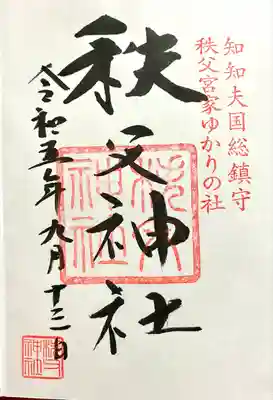 知知夫国総鎮守
秩父宮家ゆかりの社
秩父神社
令和五年九月十二日
秩父神社